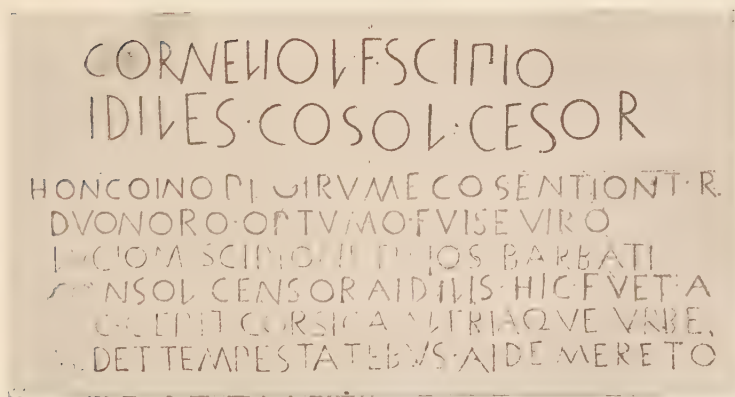 CORNELIO L F SCIPIO
IDILES · COSOL · CESOR
HONC OINO PLOIRVME COSENTIONT · R
DVONORO · OPTVMO · FVISE VIRO
SCIPIONE BARBATI
NSOL CENSOR AIDILIS · HIC FVET · A
CEPIT CORSICA ALERIAQVE VRBE
DET TEMPESTATEBVS · AIDE MERETO